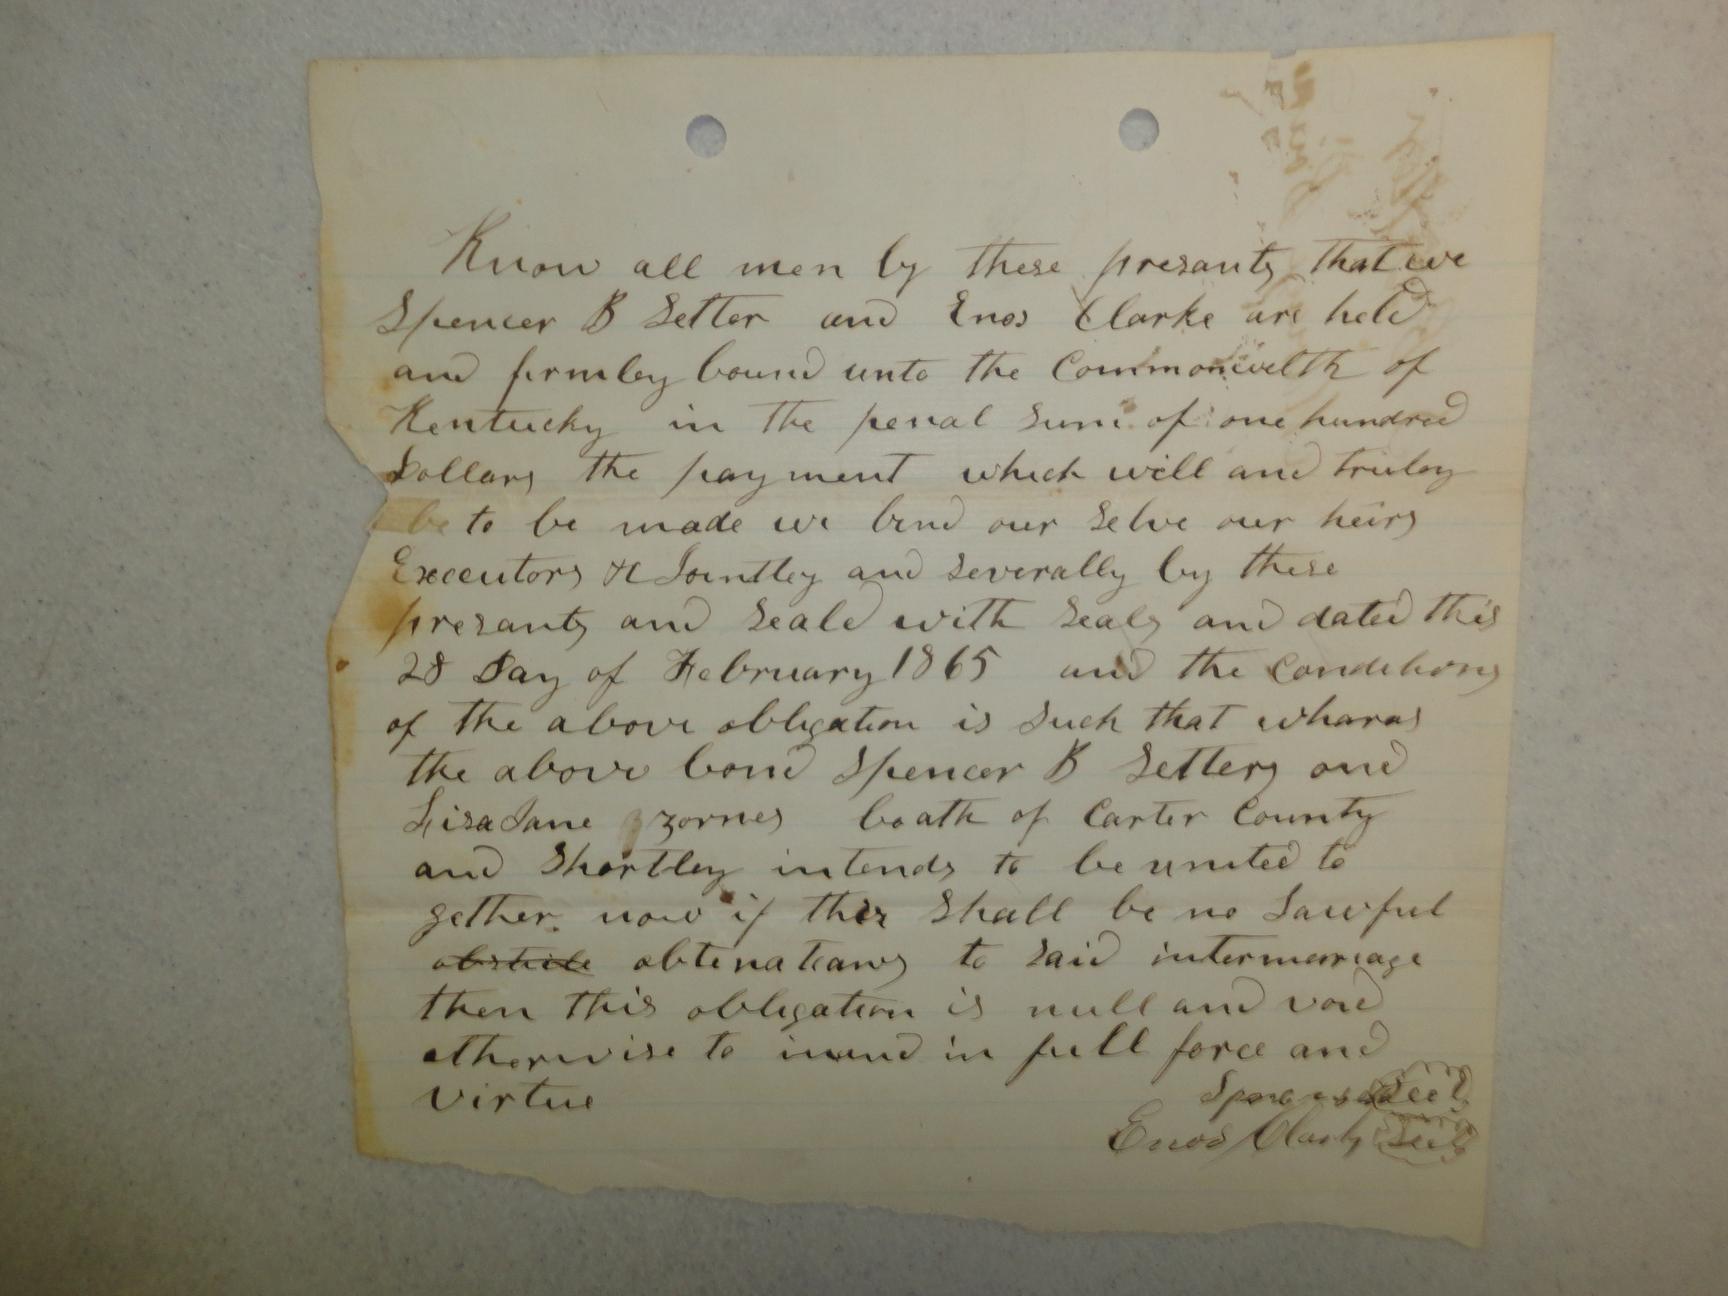 Know all men by these presants that we
Spencer B Setter and Enos Clarke are held
and firmley bound unto the Commonwelth of
Kentucky in the penal sum of one hundred
Dollars the payment which will and truley
be to be made we bind our selve our heirs
Executors &c Jointley and severally by these
presants and seald with seals and dated this
28 Day of February 1865 and the condetions
of the above obligation is such that wharas
the above bond Spencer B Setters and
Lisa Jane zornes boath of Carter County
and Shortley intends to be united to
gether now if ther shall be no Lawful
obtenateans to said intermarriage
then this obligation is null and void
otherwise to in full force and
virtue
Seil
Enos Clark Seil